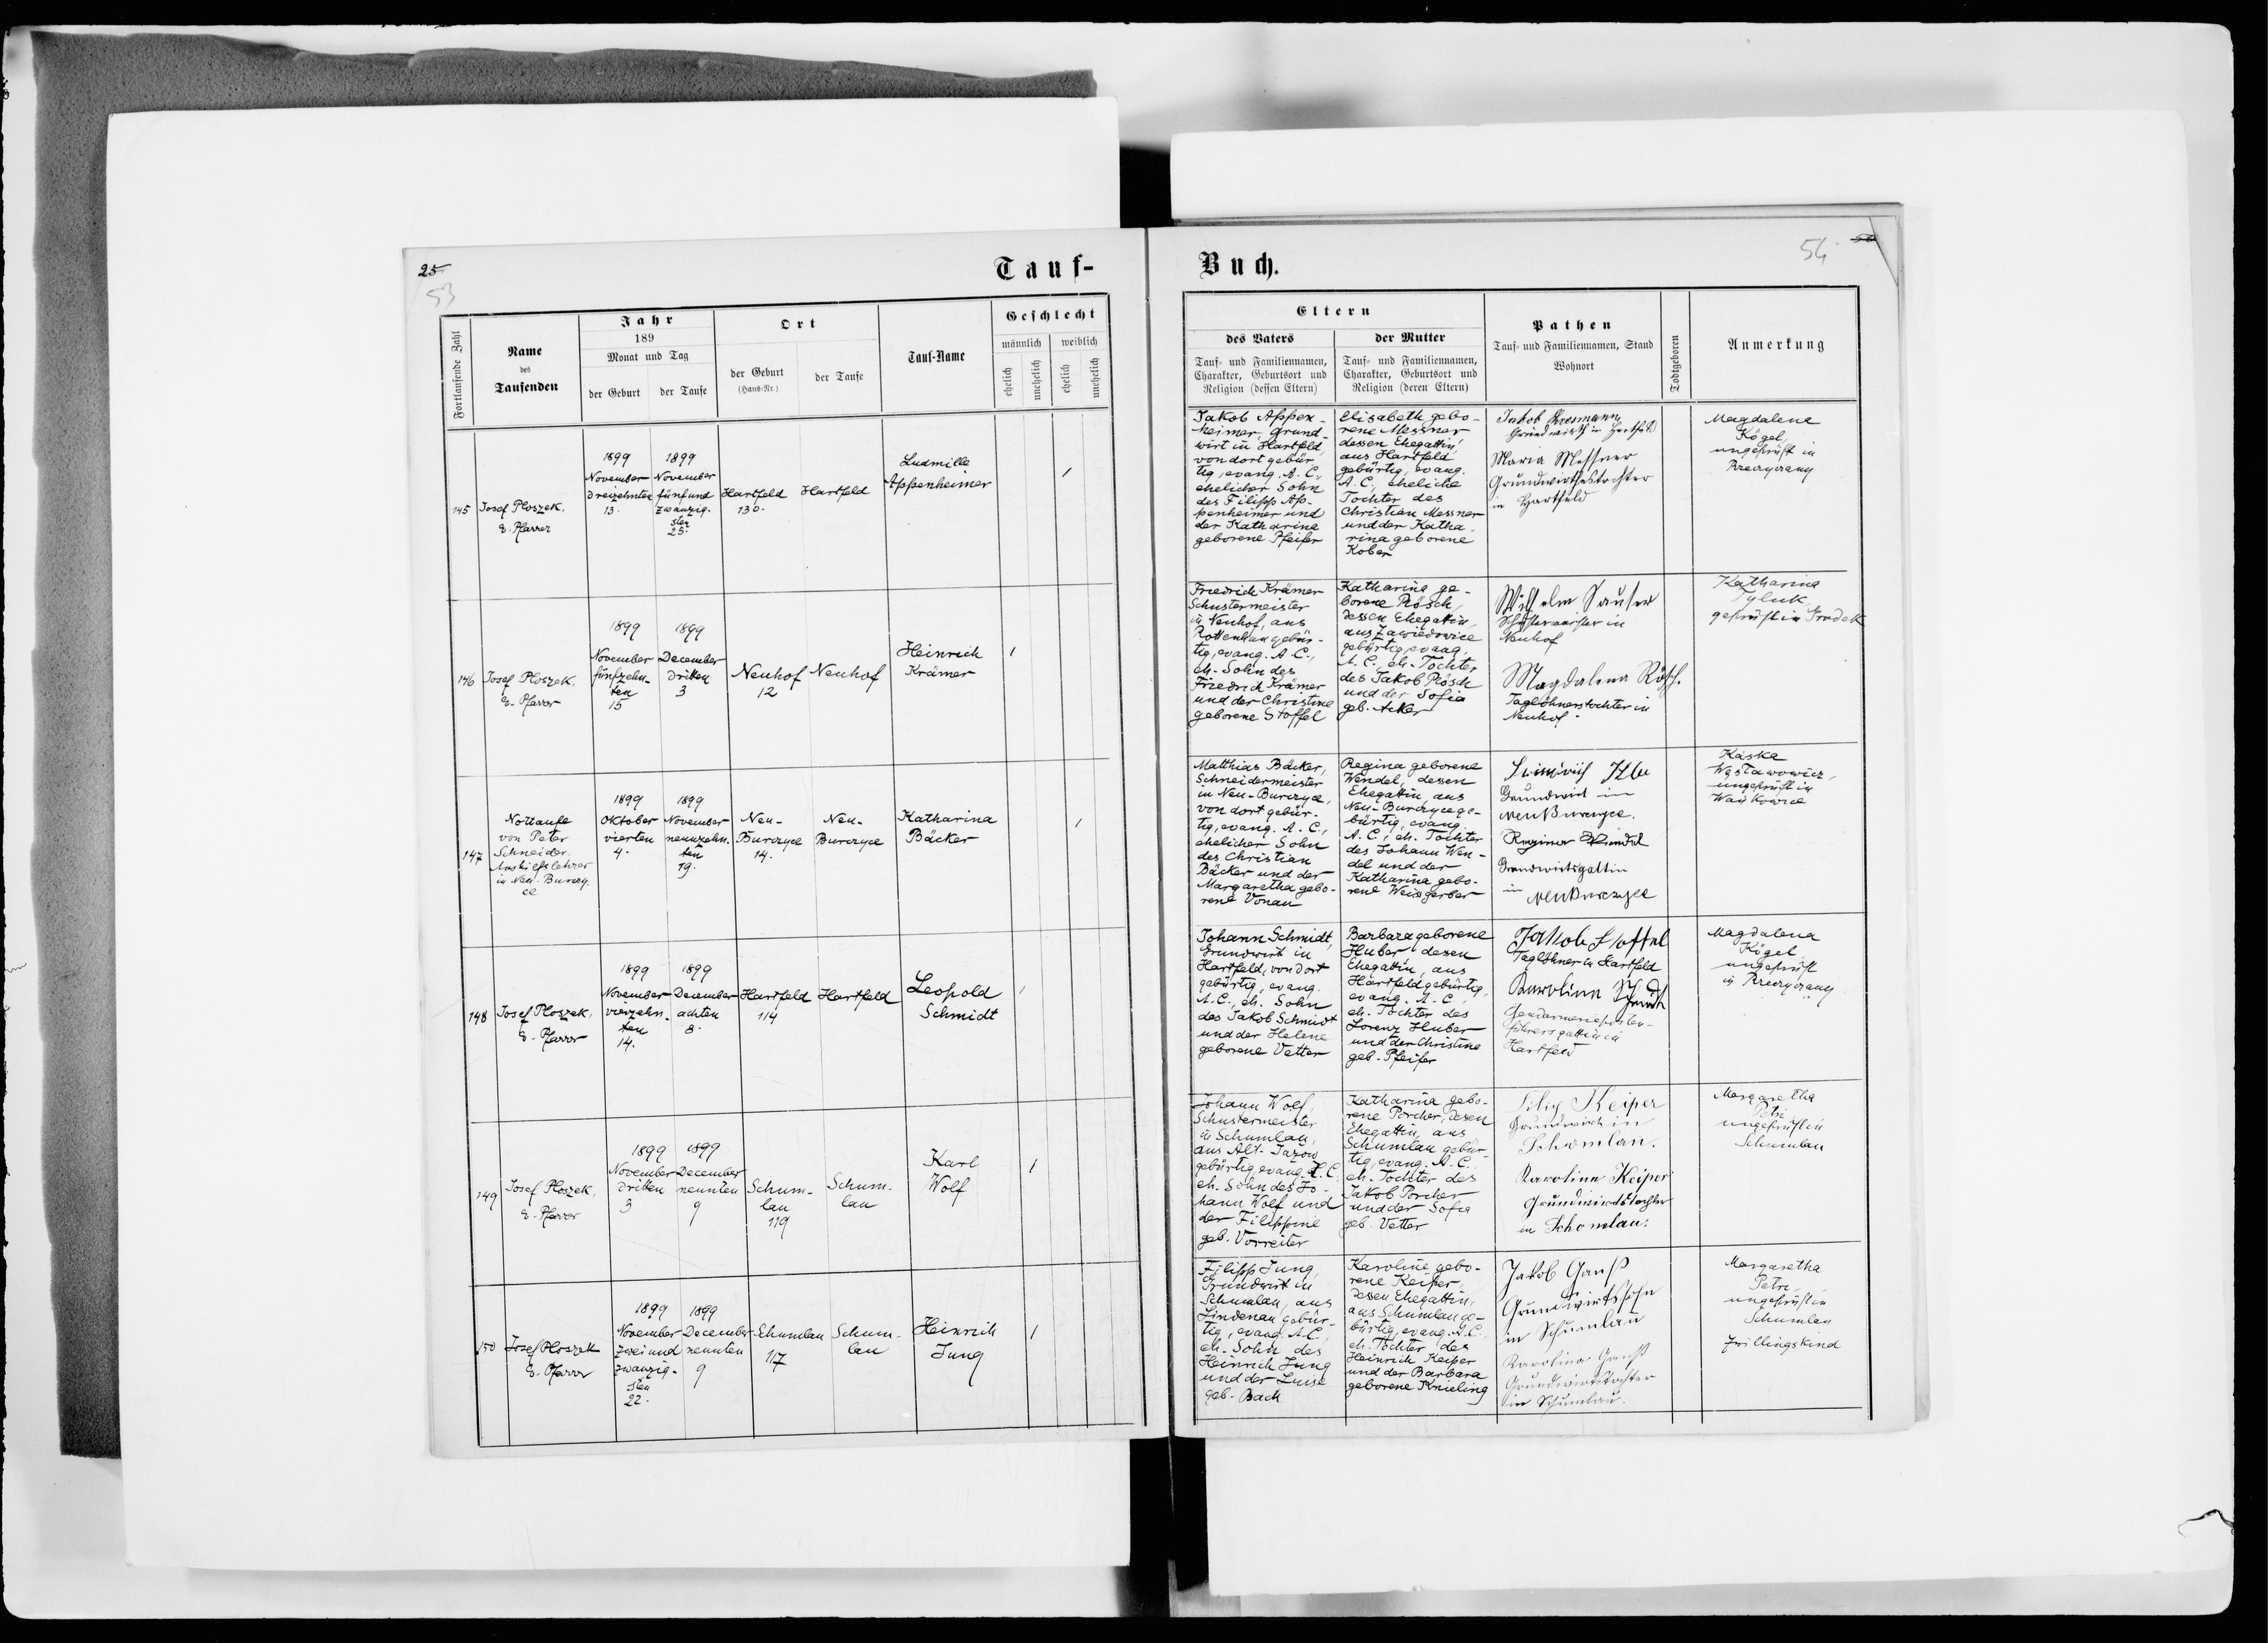 25
53
Tauf-
Fortlaufende Zahl
Name
des
Taufenden
Jahr
189
Monat und Tag
der Geburt
der Taufe
Ort
der Geburt
(Haus-Nr.)
der Taufe
Tauf-Name
Geschlecht
männlich
weiblich
ehelich
unehelich
ehelich
unehelich
145
Josef Ploszek,
E. Pfarrer
1899
November
dreizehnten
13.
1899
November
fünf und
zwanzig-
sten
25.
Hartfeld
130.
Hartfeld
Ludmille
Appenheimer
1
146
Josef Ploszek,
E. Pfarrer
1899
November
fünfzehn-
ten
15
1899
December
dritten
3
Neuhof
12
Neuhof
Heinrich
Krämer
1
147
Nottaufe
von Peter
Schneider,
Aushilfslehrer
in Neu-Burczy-
ce
1899
Oktober
vierten
4.
1899
November
neunzehn-
ten
19.
Neu-
Burczyce
14.
Neu-
Burczyce
Katharina
Bäcker
1
148
Josef Ploszek,
E. Pfarrer
1899
November
vierzehn-
ten
14.
1899
December
achten
8.
Hartfeld
114
Hartfeld
Leopold
Schmidt
1
149
Josef Ploszek,
E. Pfarrer
1899
November
dritten
3
1899
December
neunten
9
Schum-
lau
119
Schum-
lau
Karl
Wolf
1
150
Josef Ploszek
E. Pfarrer
1899
November
zwei und
zwanzig-
sten
22.
1899
December
neunten
9
Schumlau
117
Schum-
lau
Heinrich
Jung
1
Buch.
54
Eltern
des Vaters
Tauf- und Familiennamen,
Charakter, Geburtsort und
Religion (dessen Eltern)
der Mutter
Tauf- und Familiennamen,
Charakter, Geburtsort und
Religion (deren Eltern)
Pathen
Tauf- und Familiennamen, Stand
Wohnort
Todtgeboren
Anmerkung
Jakob Appen-
heimer, Grund-
wirt in Hartfeld,
von dort gebür-
tig, evang. A. C.,
ehelicher Sohn
des Filipp Ap-
penheimer und
der Katharina
geborene Pfeifer
Elisabeth gebo-
rene Messner
dessen Ehegattin,
aus Hartfeld
gebürtig, evang.
A. C., eheliche
Tochter des
Christian Messner
und der Katha-
rina geborene
Kober
Jakob
Grundwirth in Hartfeld
Maria Messner
Grundwirthestochter
in Hartfeld
Magdalene
Kögel,
ungeprüft in
Friedrich Krämer
Schustermeister
in Neuhof, aus
Rottenhan gebür-
tig, evang. A. C.,
eh. Sohn des
Friedrich Krämer
und der Christine
geborene Stoffel
Katharina ge-
borene Rösch,
dessen Ehegattin,
aus Zawidowice
gebürtig, evang.
A. C., eh. Tochter
des Jakob Rösch
und der Sofia
geb. Acker
Wilhelm Sauter
Schustermeister in
Neuhof
Magdalena Rösch.
Taglöhnerstochter in
Neuhof
Katharina
Tyluk
geprüft in Grodek
Matthias Bäcker,
Schneidermeister
in Neu-Burczyce,
von dort gebür-
tig, evang. A. C.,
ehelicher Sohn
des Christian
Bäcker und der
Margaretha gebo-
rene Vonau
Regina geborene
Wendel, dessen
Ehegattin, aus
Neu-Burczyce ge-
bürtig, evang.
A. C., eh. Tochter
des Johann Wen-
del und der
Katharina gebo-
rene Weisgerber
Heinrich
Grundwirt in
neuBurczyce.
Regina Wendel
Grundwirtsgattin
in neuBurczyce
Kaska
ungeprüft in
Johann Schmidt,
Grundwirt in
Hartfeld, von dort
gebürtig, evang.
A. C., eh. Sohn
des Jakob Schmidt
und der Helene
geborene Vetter
Barbara geborene
Huber dessen
Ehegattin, aus
Hartfeld gebürtig,
evang. A. C.,
eh. Tochter des
Lorenz Huber
und der Christine
geb. Pfeifer
Jakob Stoffel
Taglöhner in Hartfeld
Karolina Schmidt
Gendarmerieposten-
führersgattin in
Hartfeld
Magdalena
Kögel
ungeprüft
Johann Wolf,
Schustermeister
in Schumlau,
aus Alt-Jazow
gebürtig, evang. A. C.
eh. Sohn des Jo-
hann Wolf und
der Filippine
geb. Vorreiter
Katharina gebo-
rene Porcher, dessen
Ehegattin, aus
Schumlau gebür-
tig, evang. A. C.,
eh. Tochter des
Jakob Porcher
und der Sofia
geb. Vetter
Filip Keiper
Grundwirt in
Schomlau.
Karoline Keiper
Grundwirtstochter
in Schomlau.
Margaretha
Petri
ungeprüft in
Schumlau
Filipp Jung,
Grundwirt in
Schumlau, aus
Lindenau gebür-
tig, evang. A. C.,
eh. Sohn des
Heinrich Jung
und der Luise
geb. Bach
Karoline gebo-
rene Keiper,
dessen Ehegattin,
aus Schumlau ge-
bürtig, evang. A. C.,
eh. Tochter des
Heinrich Keiper
und der Barbara
geborene Knieling
Jakob Ganß
Grundwirtssohn
in Schumlau
Karolina Ganß
Grundwirtstochter
in Schumlau.
Margaretha
Petri,
ungeprüft in
Schumlau
Zwillingskind